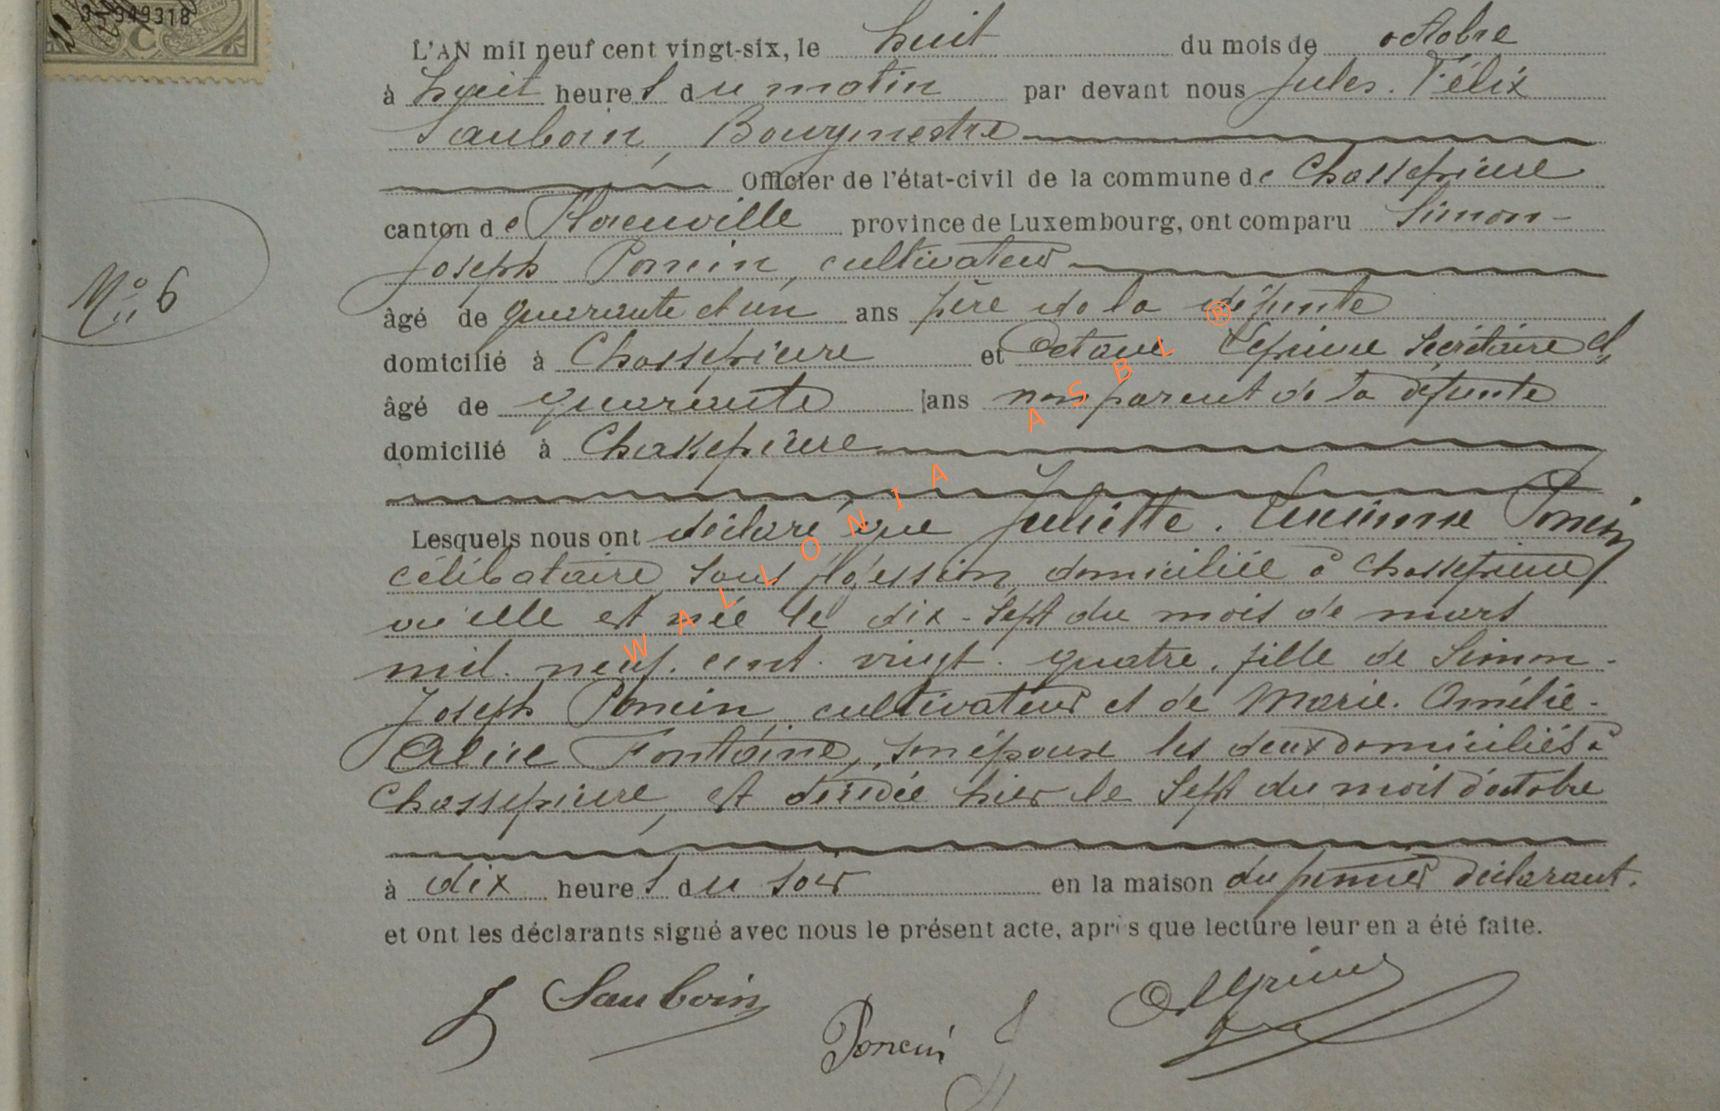 3-949318
C
L'AN mil neuf cent vingt-six, le huit du mois de octobre
à huit heures du matin par devant nous Jules. Félix
Sauboin, Bourgmestre
Officier de l'état-civil de la commune de Chassepierre
canton de Florenville province de Luxembourg, ont comparu Simon-
Joseph Poncin, cultivateur
N° 6
âgé de quarante et un ans père de la défunte
domicilié à Chassepierre et Octave Lépine secrétaire cl,
âgé de quarante ans non parent de la défunte
domicilié à Chassepierre
Lesquels nous ont déclaré que Juliette. Poncin
célibataire sans profession domiciliée à Chassepierre
où elle est née le dix-sept du mois de mars
mil. neuf. cent. vingt. quatre. fille de Simon-
Joseph Poncin cultivateur et de Marie. Amélie-
Alice Fontaine, son épouse les deux domiciliés à
Chassepierre, est décédée hier le sept du mois d'octobre
à dix heures du soir en la maison du premier déclarant.
et ont les déclarants signé avec nous le présent acte, après que lecture leur en a été faite.
J Sauboin
Poncin J
WALLONIA ASBL ®